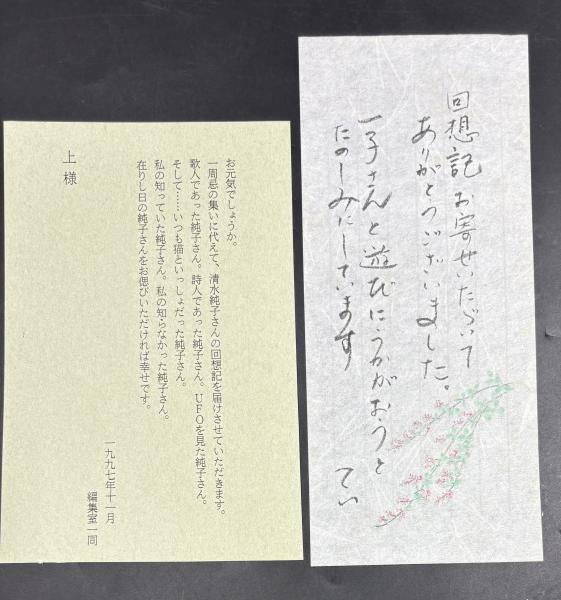 回想記 お寄せいただいて
ありがとうございました。
一子さんと遊びにうかがおうと
たのしみにしています
てい
お元気でしょうか。
一周忌の集いに代えて、清水純子さんの回想記を届けさせていただきます。
歌人であった純子さん。詩人であった純子さん。UFOを見た純子さん。
そして……いつも猫といっしょだった純子さん。
私の知っていた純子さん。私の知らなかった純子さん。
在りし日の純子さんをお偲びいただければ幸せです。
一九九七年十一月
編集室一同
上様